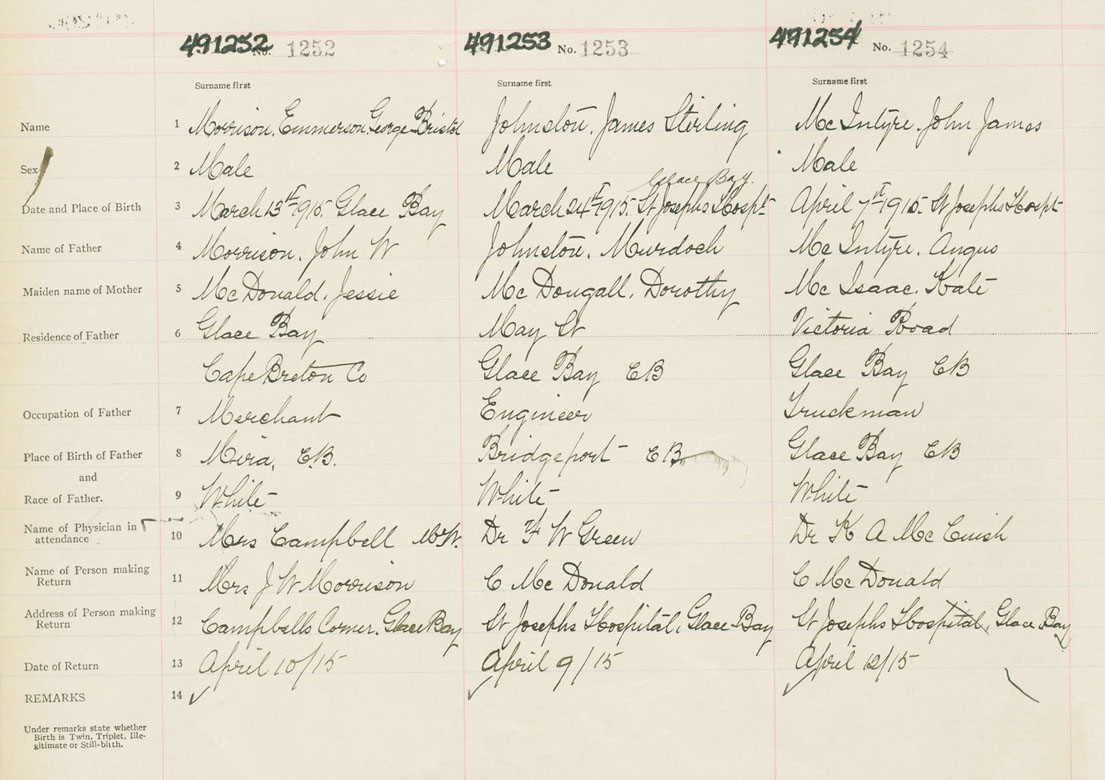 491252 No. 1252 491253 No. 1253 491254 No. 1254
Surname first Surname first Surname first
Name 1 Morrison, Emmerson George Bristol Johnston, James Stirling Mc Intyre, John James
Sex 2 Male Male Male
Glace Bay
Date and Place of Birth 3 March 13th 1915. Glace Bay March 24th 1915. St Josephs Hospt April 7th 1915. St Josephs Hospt
Name of Father 4 Morrison, John W Johnston, Murdoch Mc Intyre, Angus
Maiden name of Mother 5 Mc Donald, Jessie Mc Dougall, Dorothy Mc Isaac, Kate
Residence of Father 6 Glace Bay May St Victoria Road
Cape Breton Co Glace Bay CB Glace Bay CB
Occupation of Father 7 Merchant Engineer Truckman
Place of Birth of Father 8 Mira, C.B. Bridgeport CB. Glace Bay CB
and
Race of Father. 9 White White White
Name of Physician in
attendance 10 Mrs Campbell Dr F W Green Dr K A Mc Cuish
Name of Person making
Return 11 Mrs J W Morrison C Mc Donald C Mc Donald
Address of Person making
Return 12 Campbells Corner, Glace Bay St Josephs Hospital, Glace Bay St Josephs Hospital, Glace Bay
Date of Return 13 April 10/15 April 9/15 April 12/15
REMARKS 14
Under remarks state whether
Birth is Twin, Triplet, Ille-
gitimate or Still-birth.